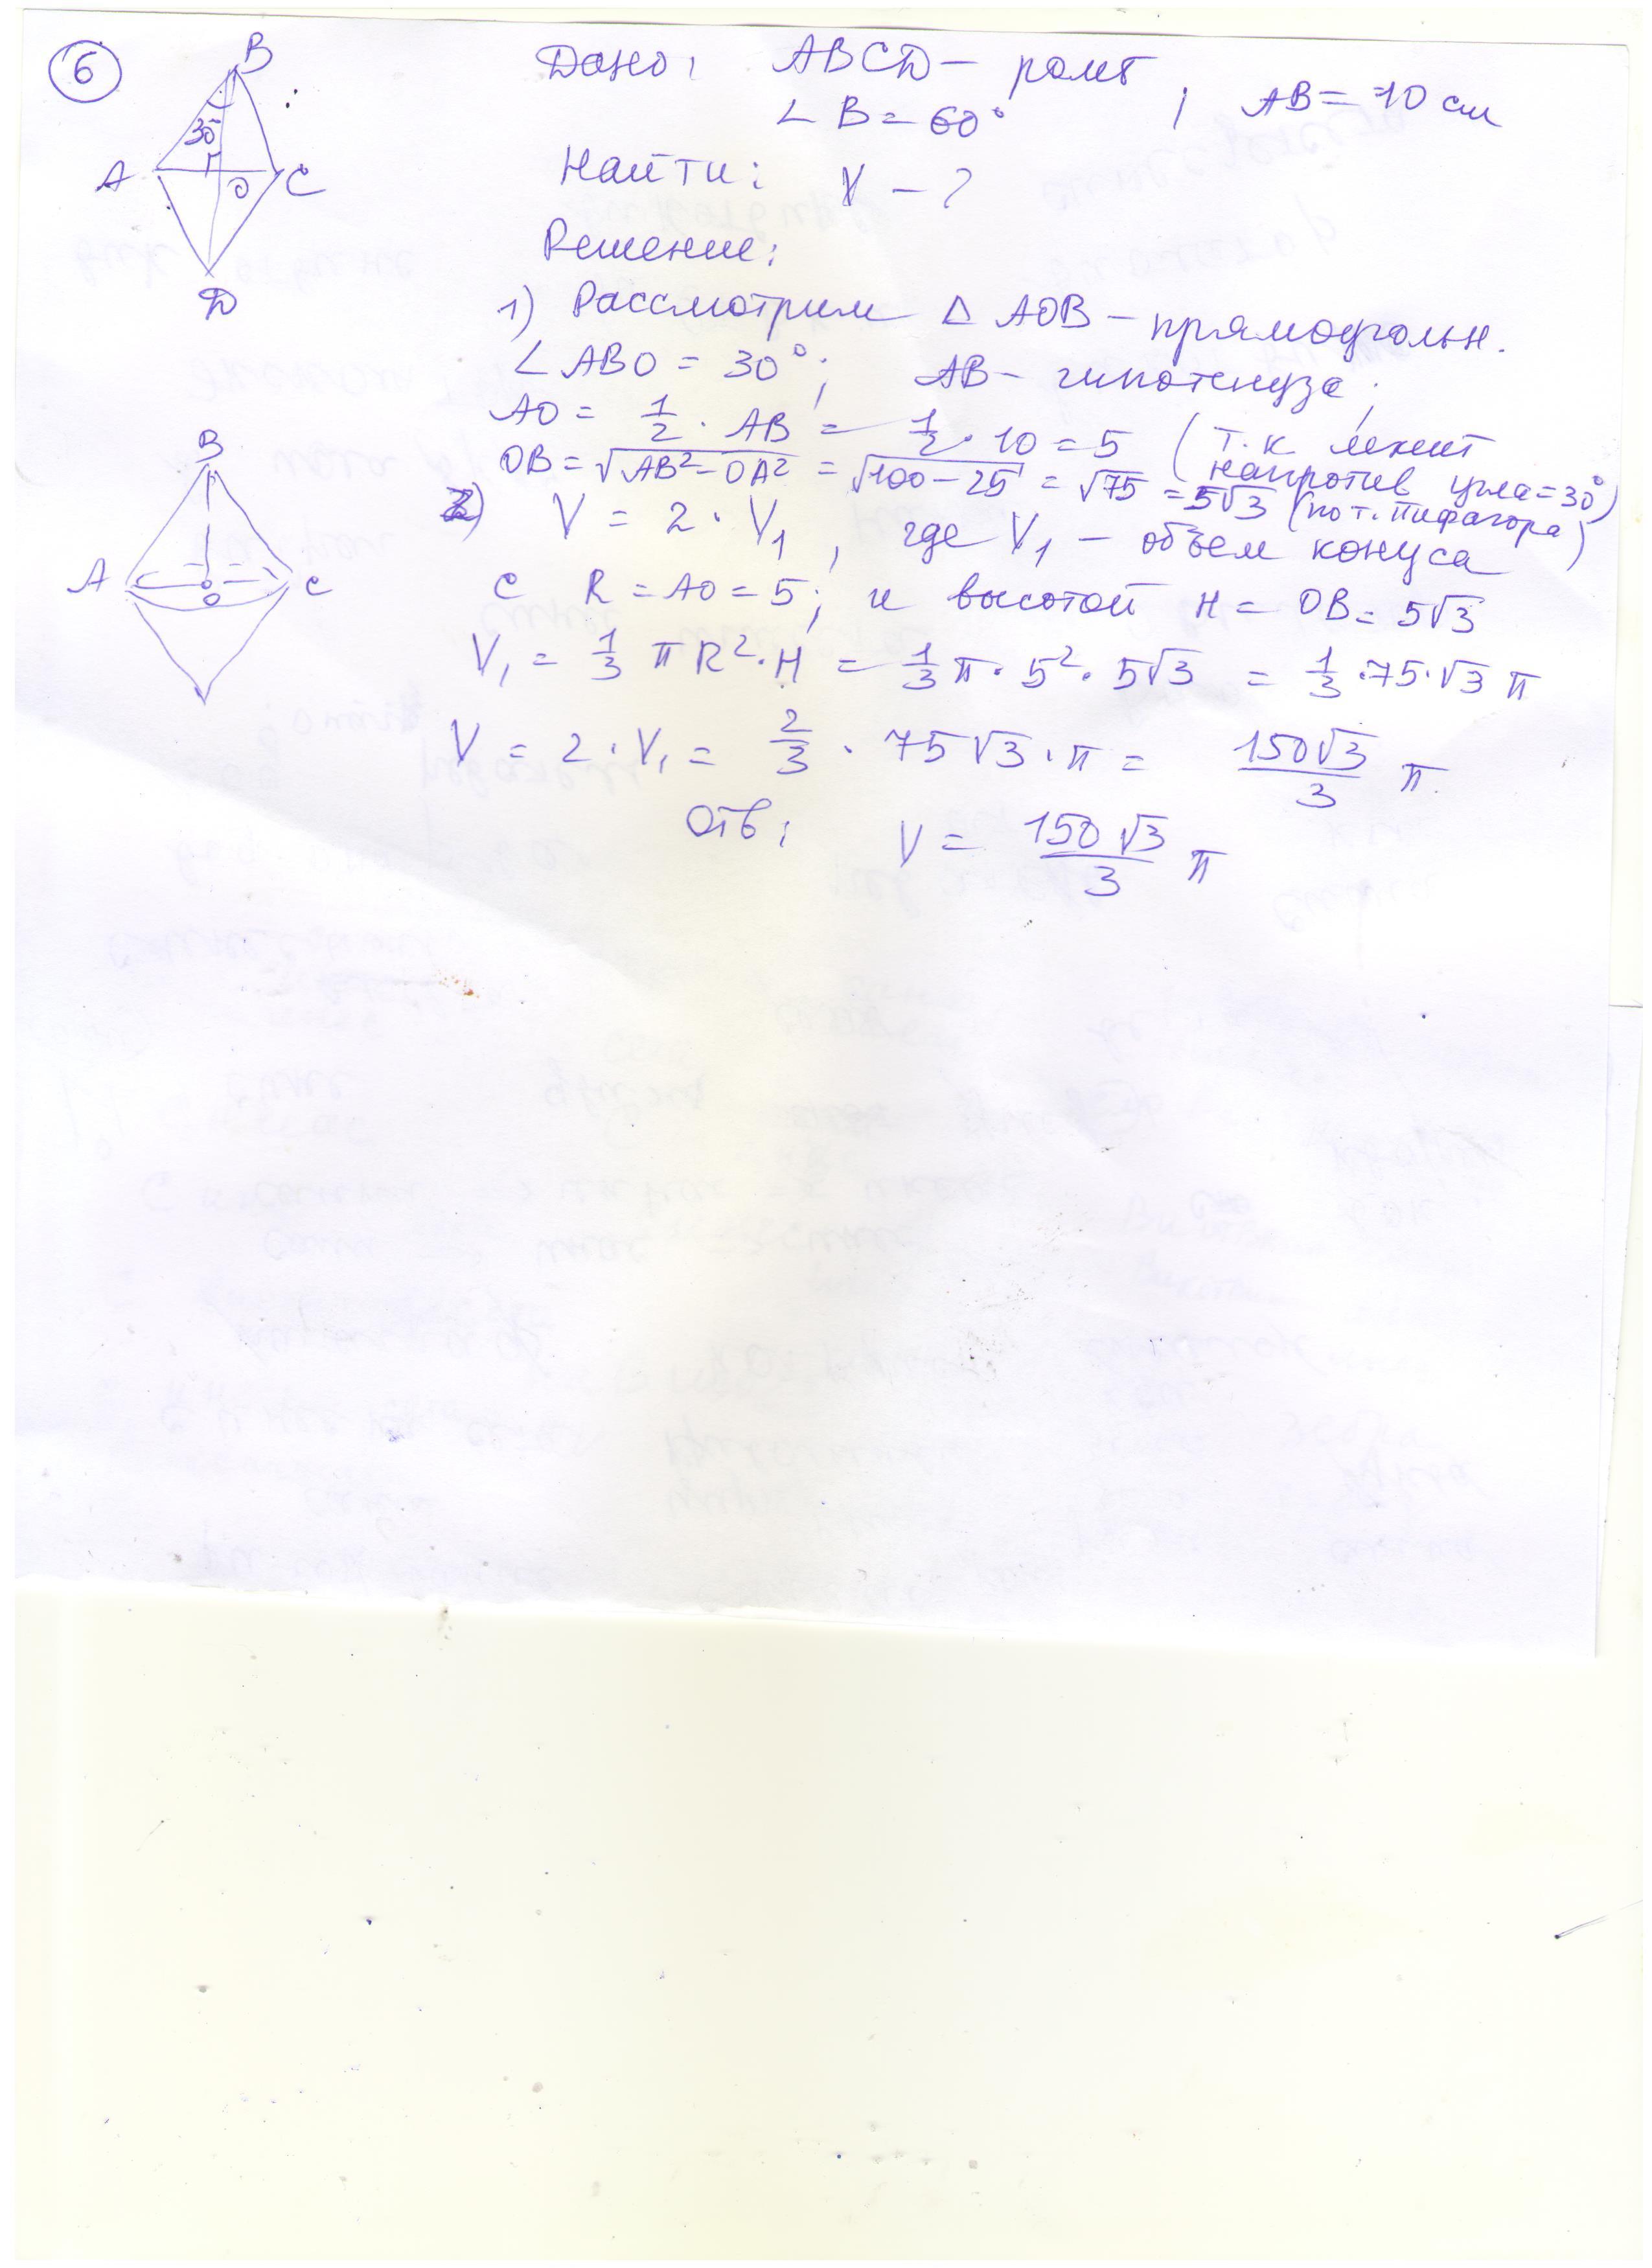 6
B
30°
A
O
C
D
Дано: ABCD – ромб ; AB = 10 см
∠ B = 60°
Найти: V – ?
Решение:
1) Рассмотрим △ AOB – прямоугольн.
∠ ABO = 30° ; AB – гипотенуза ;
AO = 1/2 · AB = 1/2 · 10 = 5 (т.к лежит напротив угла = 30°)
OB = √AB² – OA² = √100 – 25 = √75 = 5√3 (по т. Пифагора)
2) V = 2 · V₁ , где V₁ – объем конуса
с R = AO = 5 ; и высотой H = OB = 5√3
V₁ = 1/3 π R² · H = 1/3 π · 5² · 5√3 = 1/3 · 75 · √3 π
V = 2 · V₁ = 2/3 · 75 √3 · π = 150√3/3 π
Отв: V = 150 √3/3 π
B
A
O
C